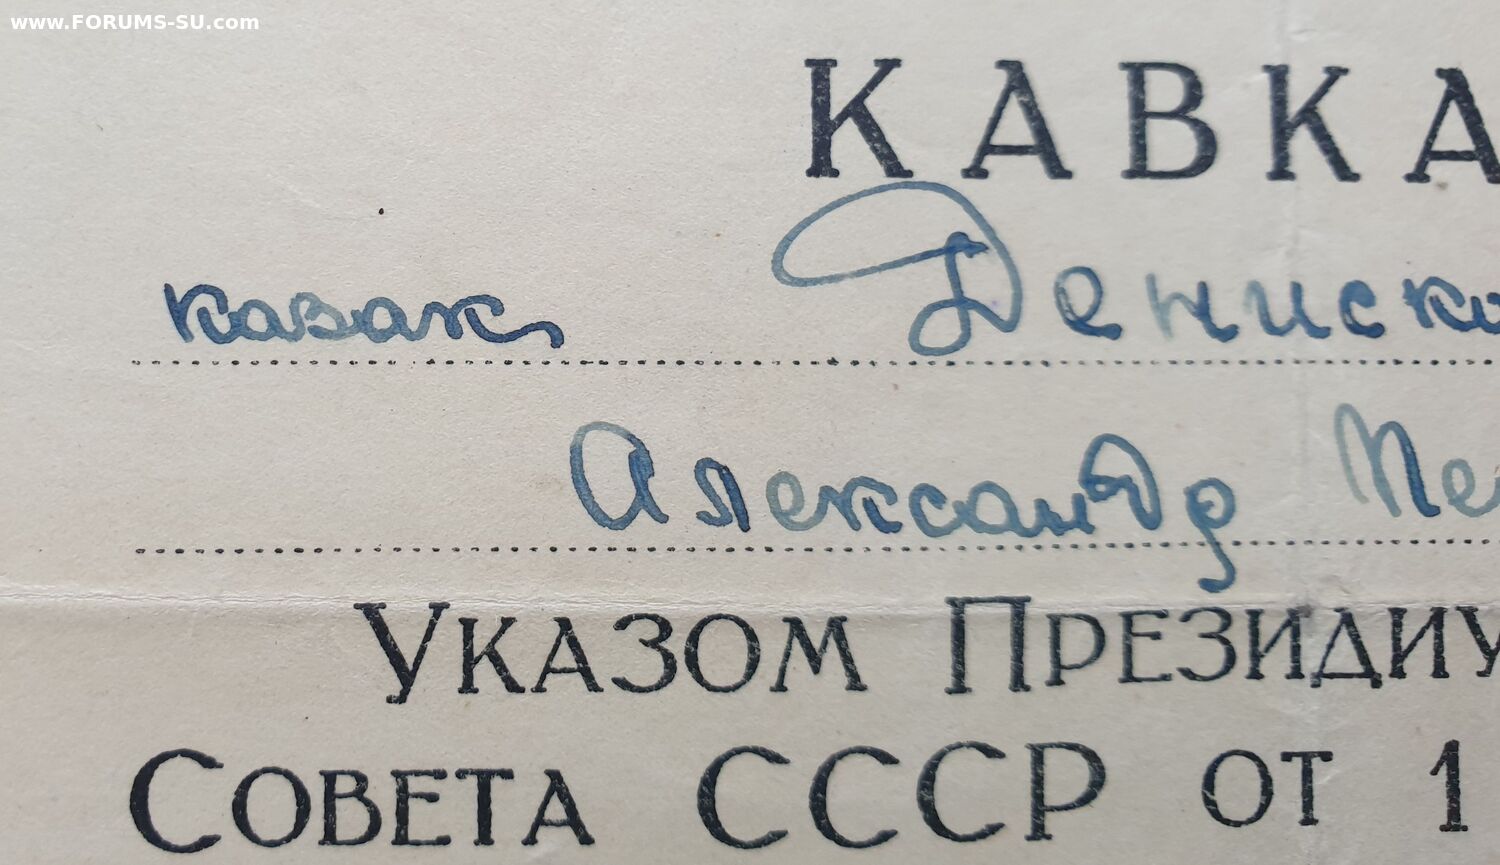 www.FORUMS-SU.com
КАВКА
казак Дениско
Александр Пе
Указом Президиу
Совета СССР от 1